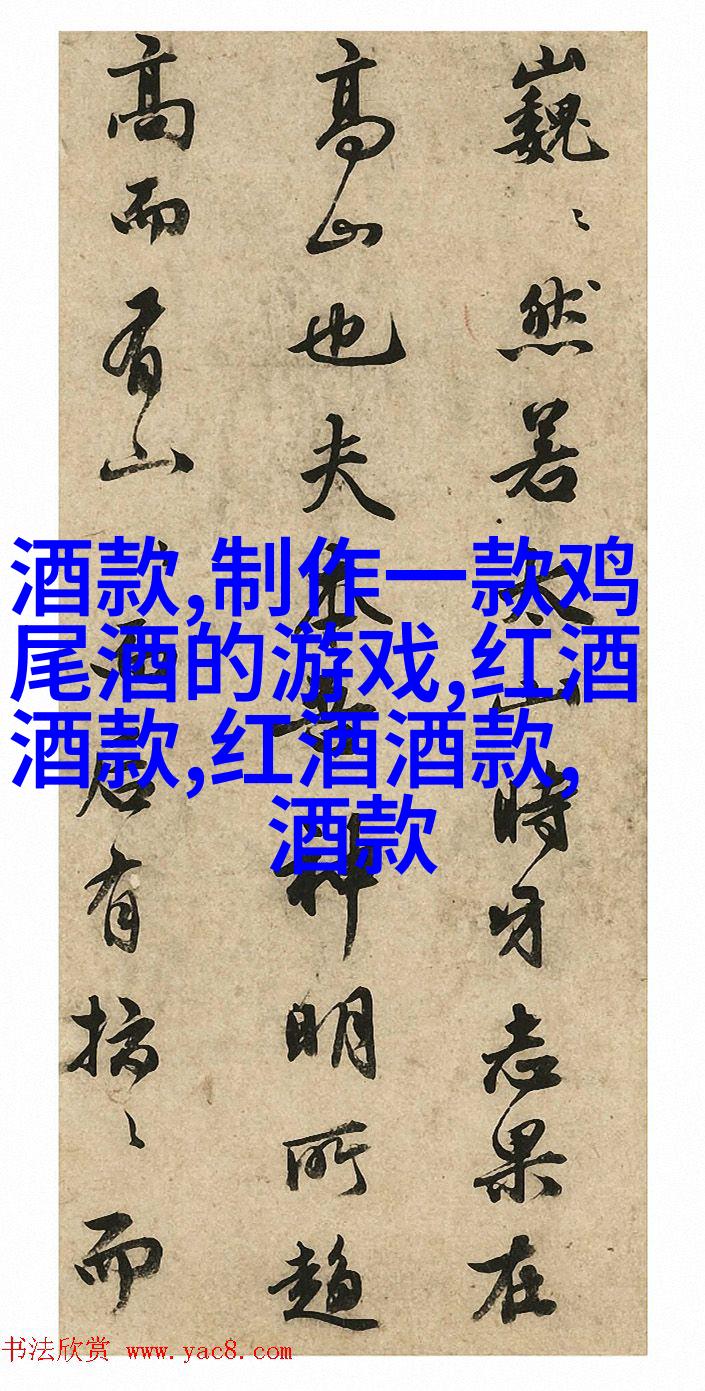 巍〻然若太山時牙志果在
高山也夫神明所趨
高而有山有而
酒款,制作一款鸡
尾酒的游戏,红酒
酒款,红酒酒款,
酒款
书法欣赏 www.yac8.com